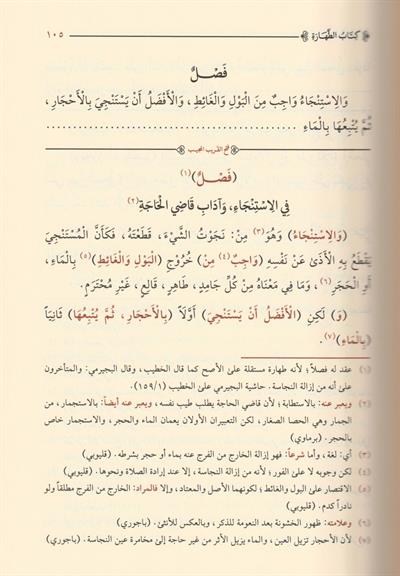 ﴿ كِتَابُ الطَّهَارَةِ ﴾ ١٠٥
فَصْلٌ
وَالِاسْتِنْجَاءُ وَاجِبٌ مِنَ الْبَوْلِ وَالْغَائِطِ، وَالْأَفْضَلُ أَنْ يَسْتَنْجِيَ بِالْأَحْجَارِ،
ثُمَّ يُتْبِعُهَا بِالْمَاءِ ......................................
فتح القريب المجيب
(فَصْلٌ)(١)
فِي الِاسْتِنْجَاءِ، وَآدَابِ قَاضِي الْحَاجَةِ(٢)
(وَالِاسْتِنْجَاءُ) وَهُوَ(٣) مِنْ: نَجَوْتُ الشَّيْءَ، قَطَعْتُهُ، فَكَأَنَّ الْمُسْتَنْجِيَ
يَقْطَعُ بِهِ الْأَذَىٰ عَنْ نَفْسِهِ (وَاجِبٌ(٤) مِنْ) خُرُوجِ (الْبَوْلِ وَالْغَائِطِ)(٥) بِالْمَاءِ،
أَوِ الْحَجَرِ(٦)، وَمَا فِي مَعْنَاهُ مِنْ كُلِّ جَامِدٍ، طَاهِرٍ، قَالِعٍ، غَيْرِ مُحْتَرَمٍ.
(وَ) لَكِنِ (الْأَفْضَلُ أَنْ يَسْتَنْجِيَ) أَوَّلًا (بِالْأَحْجَارِ، ثُمَّ يُتْبِعُهَا) ثَانِيًا
(بِالْمَاءِ)(٧).
(١) عقد له فصلاً؛ لأنه طهارة مستقلة علىٰ الأصح كما قال الخطيب، وقال البجيرمي: والمتأخرون
علىٰ أنه من إزالة النجاسة. حاشية البجيرمي علىٰ الخطيب (١/١٥٩).
(٢) ويعبر عنه: بالاستطابة؛ لأن قاضي الحاجة يطلب طيب نفسه، ويعبر عنه أيضاً: بالاستجمار، من
الجمار وهي الحصا الصغار، لكن التعبيران الأولان يعمان الماء والحجر، والاستجمار خاص
بالحجر. (برماوي)
(٣) أي: لغة، وأما شرعاً: فهو إزالة الخارج من الفرج عنه بماء أو حجر بشرطه. (قليوبي)
(٤) لكن وجوبه لا علىٰ الفور؛ لأنه من إزالة النجاسة، إلا عند إرادة الصلاة ونحوها. (قليوبي)
(٥) الاقتصار علىٰ البول والغائط؛ لكونهما الأصل والمعتاد، وإلا فالمراد: الخارج من الفرج مطلقاً ولو
نادراً كدم. (قليوبي)
(٦) وعلامته: ظهور الخشونة بعد النعومة للذكر، وبالعكس للأنثىٰ. (باجوري)
(٧) لأن الأحجار تزيل العين، والماء يزيل الأثر من غير حاجة إلىٰ مخامرة عين النجاسة. (باجوري)